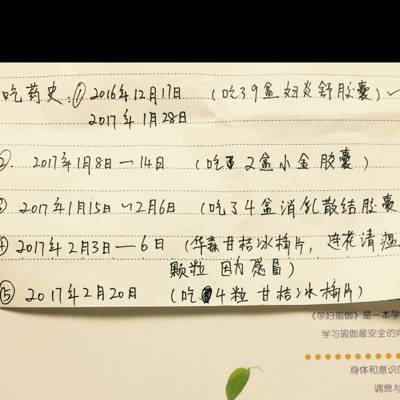 吃药史:① 2016年12月17日 (吃了9盒妇炎舒胶囊)
2017年1月28日
②. 2017年1月8日—14日 (吃了2盒小金胶囊)
③ 2017年1月15日~2月6日 (吃了4盒消乳散结胶囊
④ 2017年2月3日—6日 (华森甘桔冰梅片, 连花清瘟
颗粒 因为感冒
⑤ 2017年2月20日 (吃4粒甘桔冰梅片)
《孕妇瑜伽》是一本孕
学习瑜伽最安全的
身体和意识的
调息与